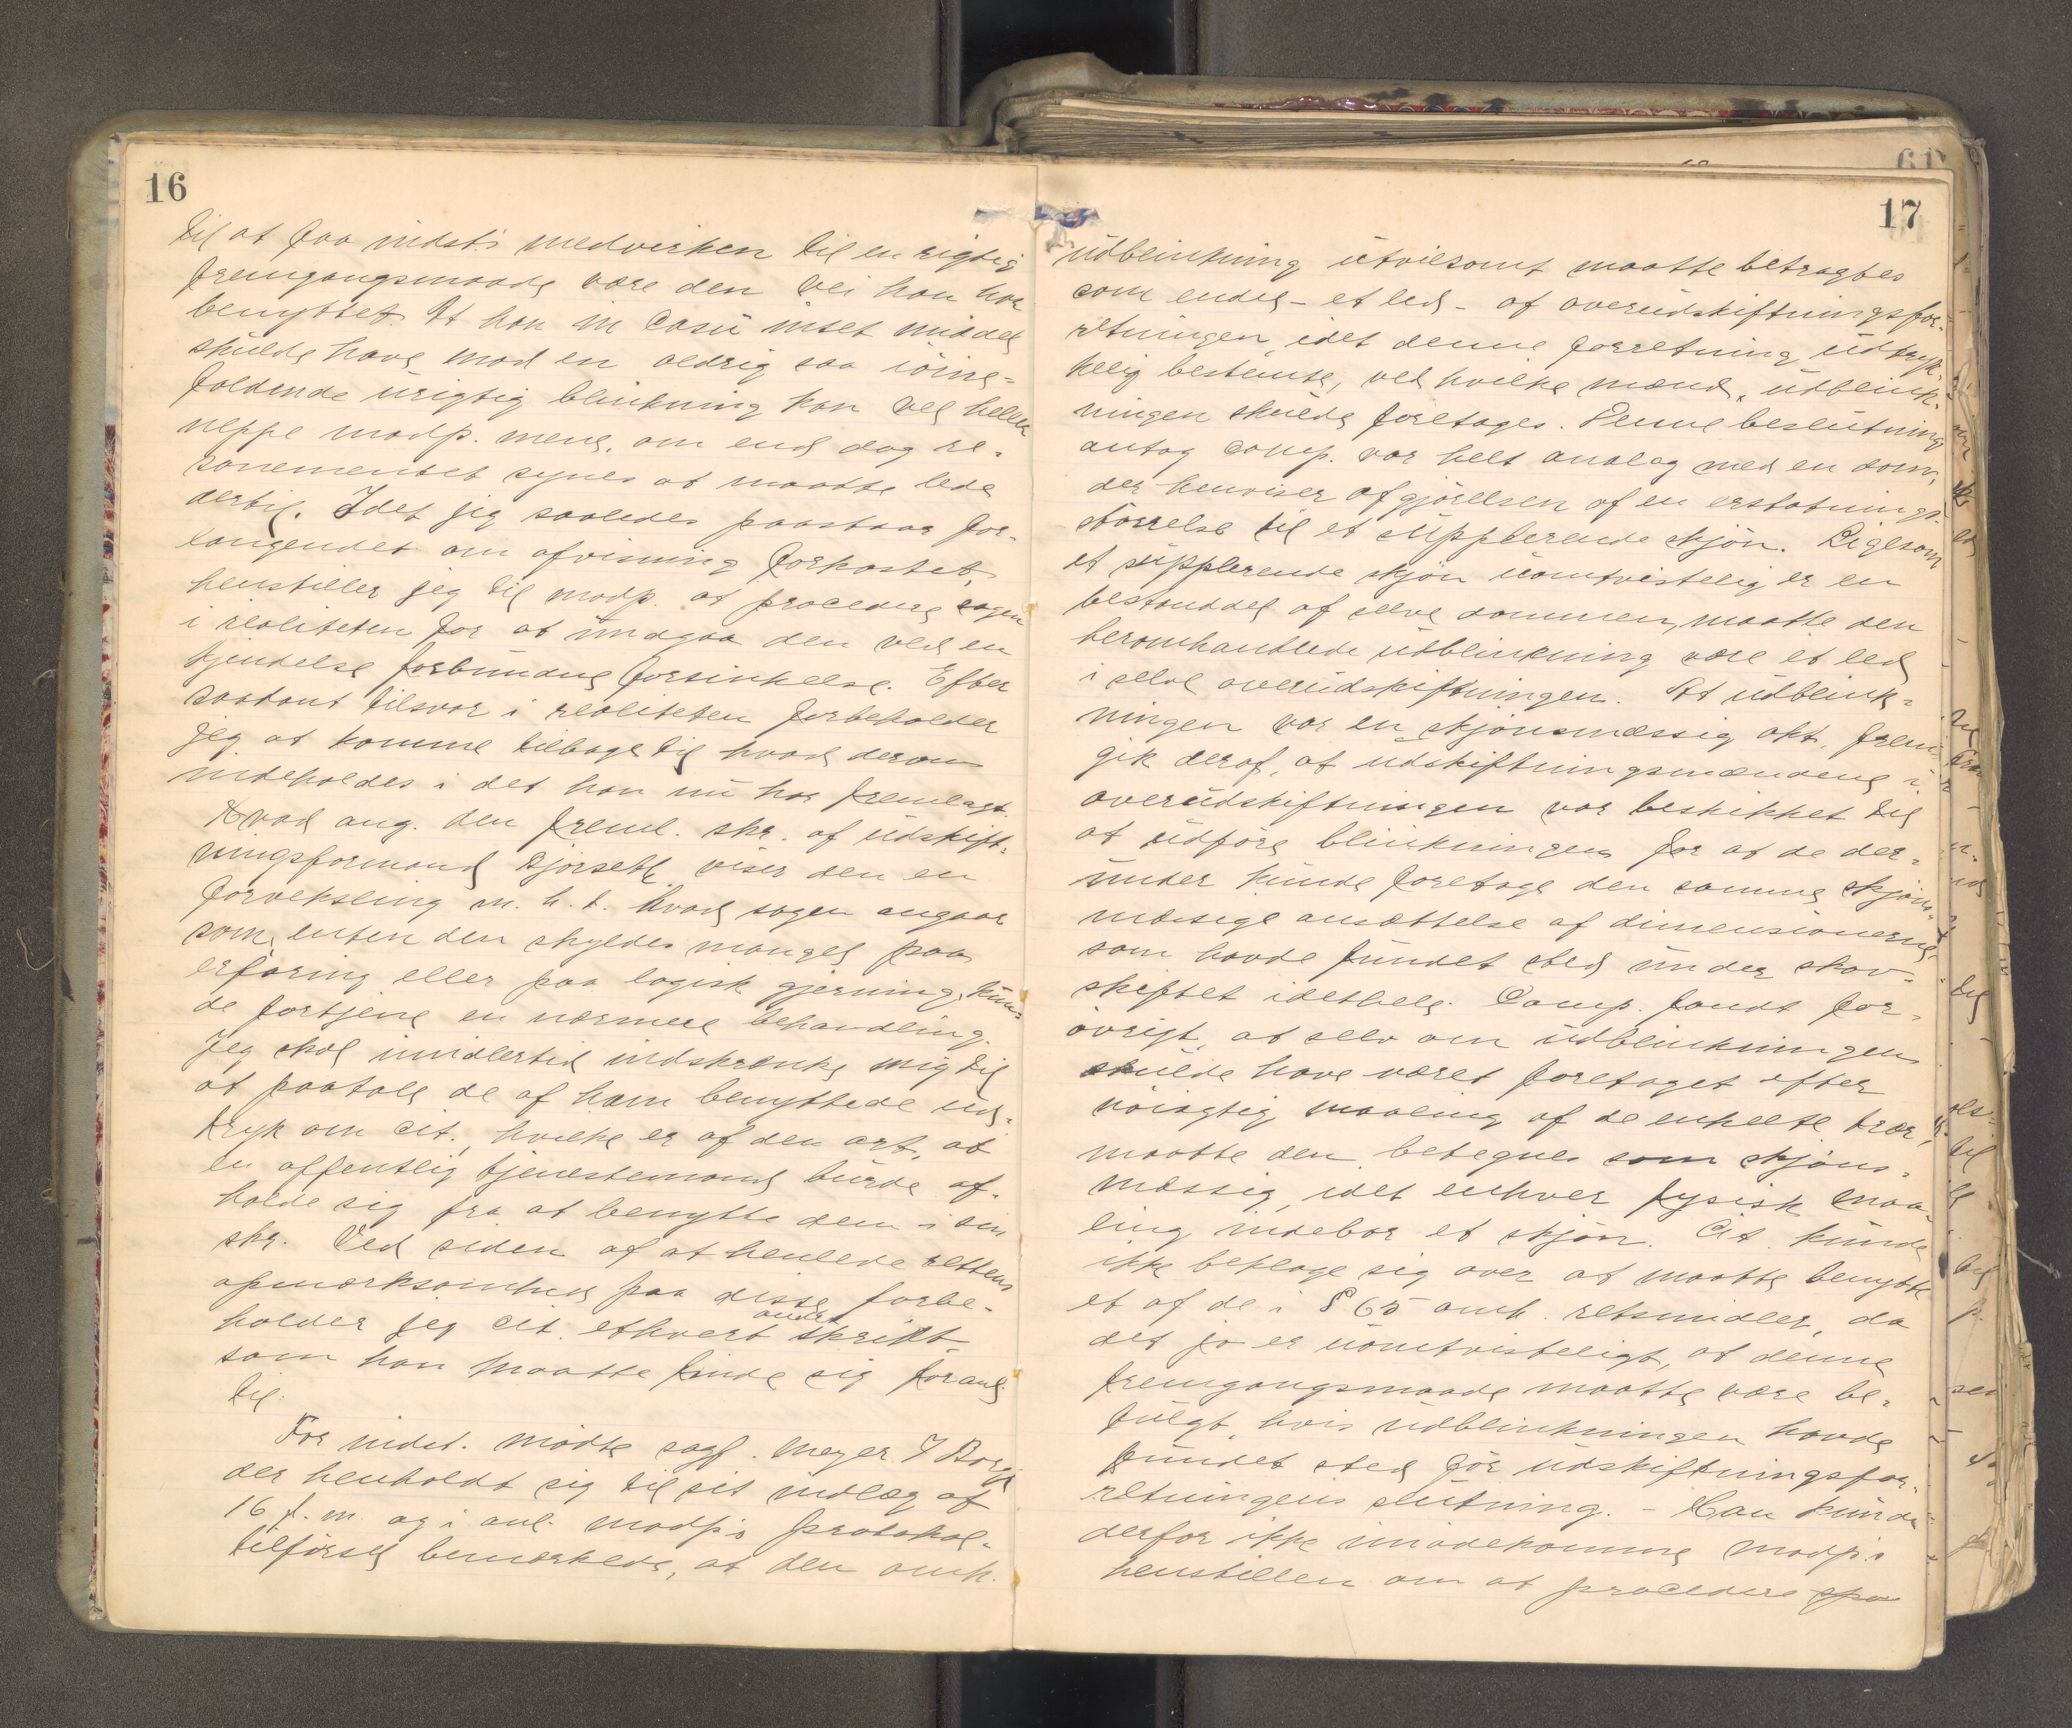 16
til at faa indst's medvirken til en rigtig
fremgangsmaade være den vei han har
benyttet. At han in casu intet middel
skulde have mod en aldrig saa iøine-
faldende urigtig blinkning kan vel heller
neppe modp. mene, om end dog re-
sonementet synes at maatte lede
dertil. Idet jeg saaledes paastaar for-
langendet om afvisning forkastet,
henstiller jeg til modp. at procedere sagen
i realiteten for at undgaa den ved en
kjendelse forbundne forsinkelse. Efter
saadant tilsvar i realiteten forbeholder
jeg at komme tilbage til hvad derom
indeholdes i det han nu har fremlagt.
Hvad ang. den freml. skr. af udskift-
ningsformand Bjørseth viser den en
forveksling m. h. t. hvad sagen angaar
som, enten den skyldes mangel paa
erfaring eller paa logisk gjerning, kun-
de fortjene en nærmere behandling.
Jeg skal imidlertid indskrænke mig til
at paatale de af ham benyttede ud-
tryk om cit., hvilke er af den art, at
en offentlig tjenestemand burde af-
holde sig fra at benytte dem i sin
skr. Ved siden af at henlede rettens
opmærksomhed paa disse forbe-
holder jeg cit. ethvert andet skridt
som han maatte finde sig foranl.
til.
For indst. mødte sagf. Meyer
der henholdt sig til sit indlæg af
16 f. m. og i anl. modp's protokol-
tilførsel bemærkede, at den omh.
17
udblinkning utvilsomt maatte betragtes
som endel - et led - af overudskiftningsfor-
retningen, idet denne forretning udtryk-
kelig bestemte, ved hvilke mænd udblink-
ningen skulde foretages. Denne beslutning
antog comp. var helt analog med en dom,
der henviser afgjørelsen af en erstatnings-
størrelse til et supplerende skjøn. Ligesom
et supplerende skjøn uomtvistelig er en
bestanddel af selve dommen, maatte den
heromhandlede udblinkning være et led
i selve overudskiftningen. At udblink-
ningen var en skjønsmæssig akt, frem-
gik deraf, at udskiftningsmændene i
overudskiftningen var beskikket til
at udføre blinkningen for at de der-
under kunde foretage den samme skjøns-
mæssige ansættelse af dimensionerne,
som havde fundet sted under skov-
skiftet idethele. Comp. fandt for-
øvrigt, at selv om udblinkningen
skulde have været foretaget efter
nøiagtig maaling af de enkelte trær,
maatte den betegnes som skjøns-
mæssig, idet enhver fysisk maa-
ling indebar et skjøn. Cit. kunde
ikke beklage sig over at maatte benytte
et af de i § 65 omh. retsmidler, da
det jo er uomtvisteligt, at denne
fremgangsmaade maatte være be-
fulgt, hvis udblinkningen havde
fundet sted før udskiftningsfor-
retningens slutning. - Han kunde
derfor ikke imødekomme modp's
henstillen om at procedere